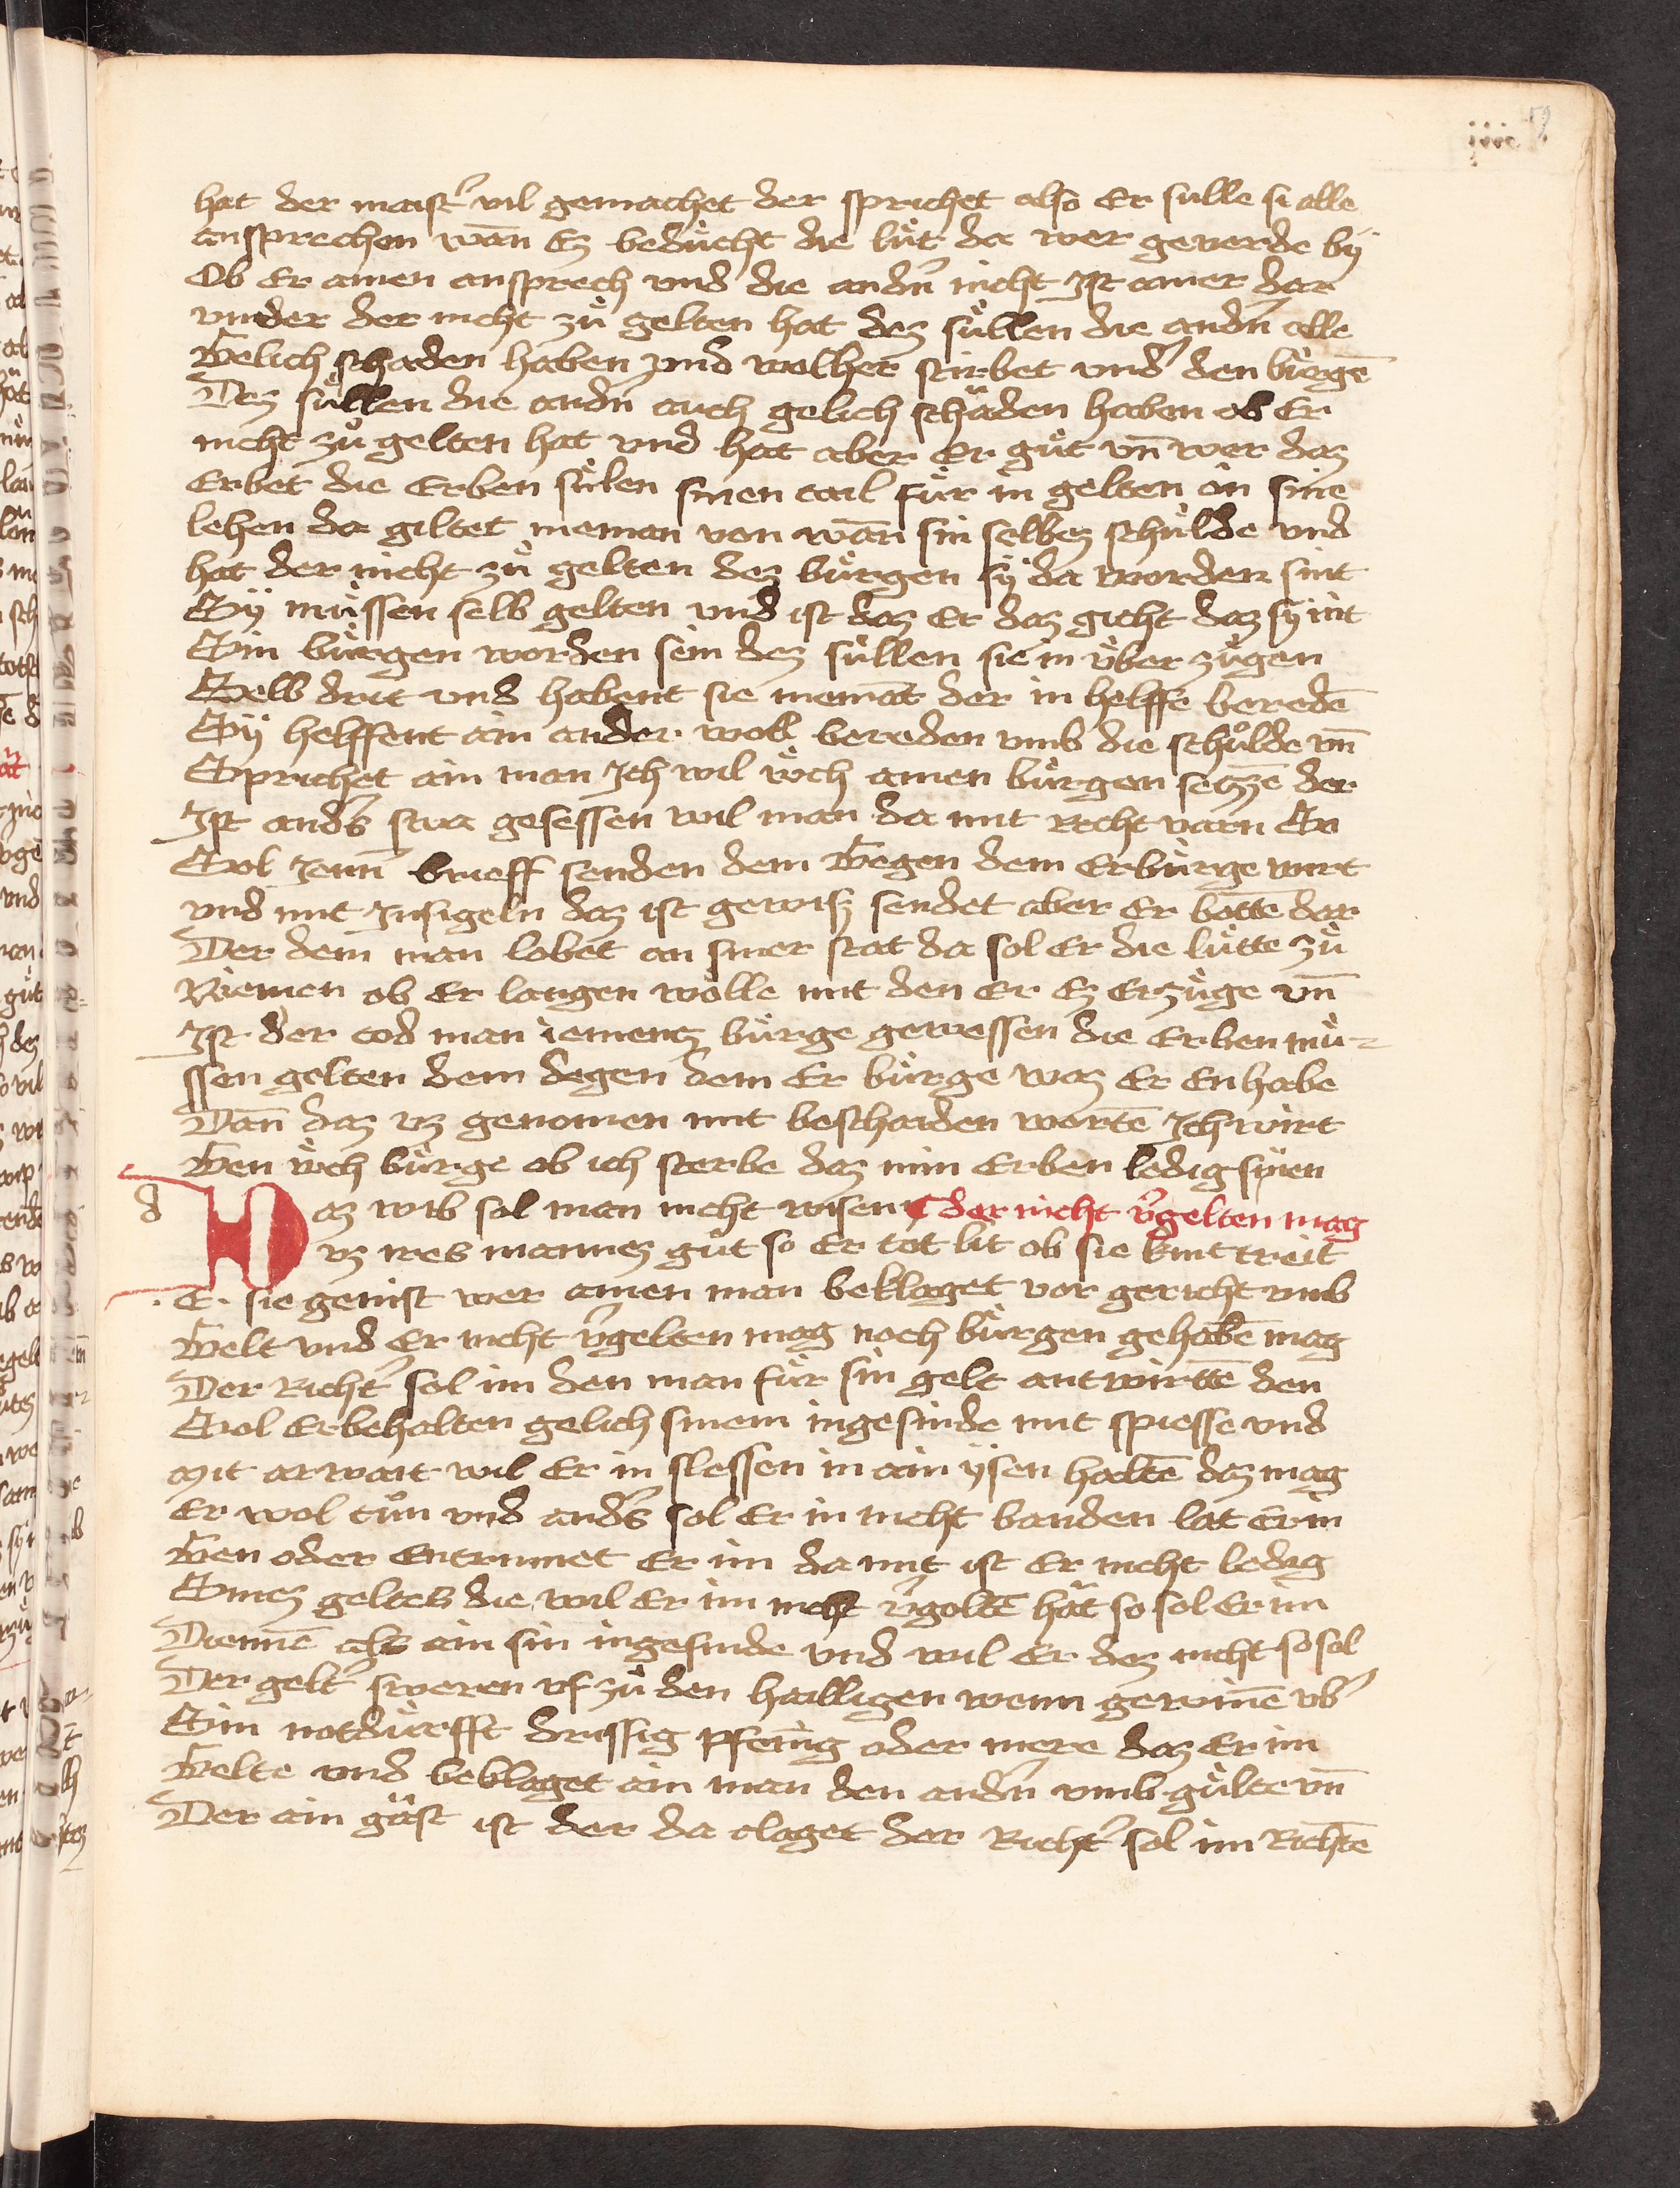 hat der maist̾ vil gemachet der sprichet also Er sulle si alle
ansprechen wān Eʒ beduͤcht die luͤt da wer geverde bÿ
Ob Er ainen ansprech vnd die and̾n nicht Ist ainer dar
vnder der nicht zuͤ gelten hat deʒ suͤllen die and̾n alle
Gelich schaden haben vnd welher stirbet vnd̾ den buͤrgē
Deʒ suͤllen die and̾n auch gelich schaͤden haben ob Er
nicht zuͤ gelten hat vnd hat aber Er guͤt vn̄ wer daʒ
Erbet die Erben suͤlen sinen tail fuͤr in gelten ān sine
lehen da giltet nieman von wān sin selbeʒ schulde vnd
hat der nicht zuͤ gelten deʒ buͤrgen sÿ da worden sint
Sÿ muͤssen selb gelten vnd ist daʒ Er daʒ gicht daʒ sÿ nit
Sin buͤrgen worden sein deʒ suͤllen sie in uͤber zuͤgen
Selb drit vnd habent sie niemāt der in helffe beredē
Sÿ helffent ain ander woll bereden vmb die schuͦlde vn̄
Sprichet ain man Ich wil uͤch ainen buͤrgen setzzē der
Ist and̾s swa gesessen wil man da mit Recht varn Er
Sol Jenn̄ brieff senden dem Gegen dem Er buͤrge wirt
vnd mit Insigeln daʒ ist gewiß sendet aber Er bottē dar
Der dem man lobet an siner stat da sol Er die luͤtte zuͤ
Niemen ob Er laugen woͤlle mit den Er Eʒ Erzuͤge vn̄
Ist der tod man iemenʒ buͤrge gewessen die Erben muͤ-
ssen gelten dem degen dem Er buͤrge waʒ Er En habe
Dān daʒ vʒ genomen mit beschaiden wortē Ich wirt
Gen uͤch buͤrge ob ich sterbe daʒ min Erben ledig sien
d
Daʒ wib sol man nicht wisen der nicht v̾gelten mag
vʒ ires manneʒ guͤt so Er tot lit ob sie kint treit
E. sie genist wer ainen man beklaget vor gericht vmb
Gelt vnd Er nicht v̾gelten mag noch buͤrgen gehabē mag
Der Richt̾ sol im den man fuͤr sin gelt antwirttē den
Sol Er behalten gelich sinem ingesinde mit spiesse vnd
mit arwait wil Er in slessen in ain ÿsen haltē daʒ mag
Er wol tuͦn vnd and̾s sol Er in nicht banden lat er in
Gen oder Entrinnet Er im da mit ist Er nicht ledig
Sineʒ geltes die wil Er im nicht v̾goltē haͤt so sol Er im
Diennē als ain sin ingesinde vnd wil Er deʒ nicht so sol
Der gelt̾ sweren vf zuͤ den hailligen wenn gewinē vb̾
Sin notduͤrfft drissig pfenīg oder mere daʒ Er im
Gelte vnd beklaget ain man den and̾n vmb guͤlte vn̄
Der ain gast ist der da claget der Richt̾ sol im Richtē